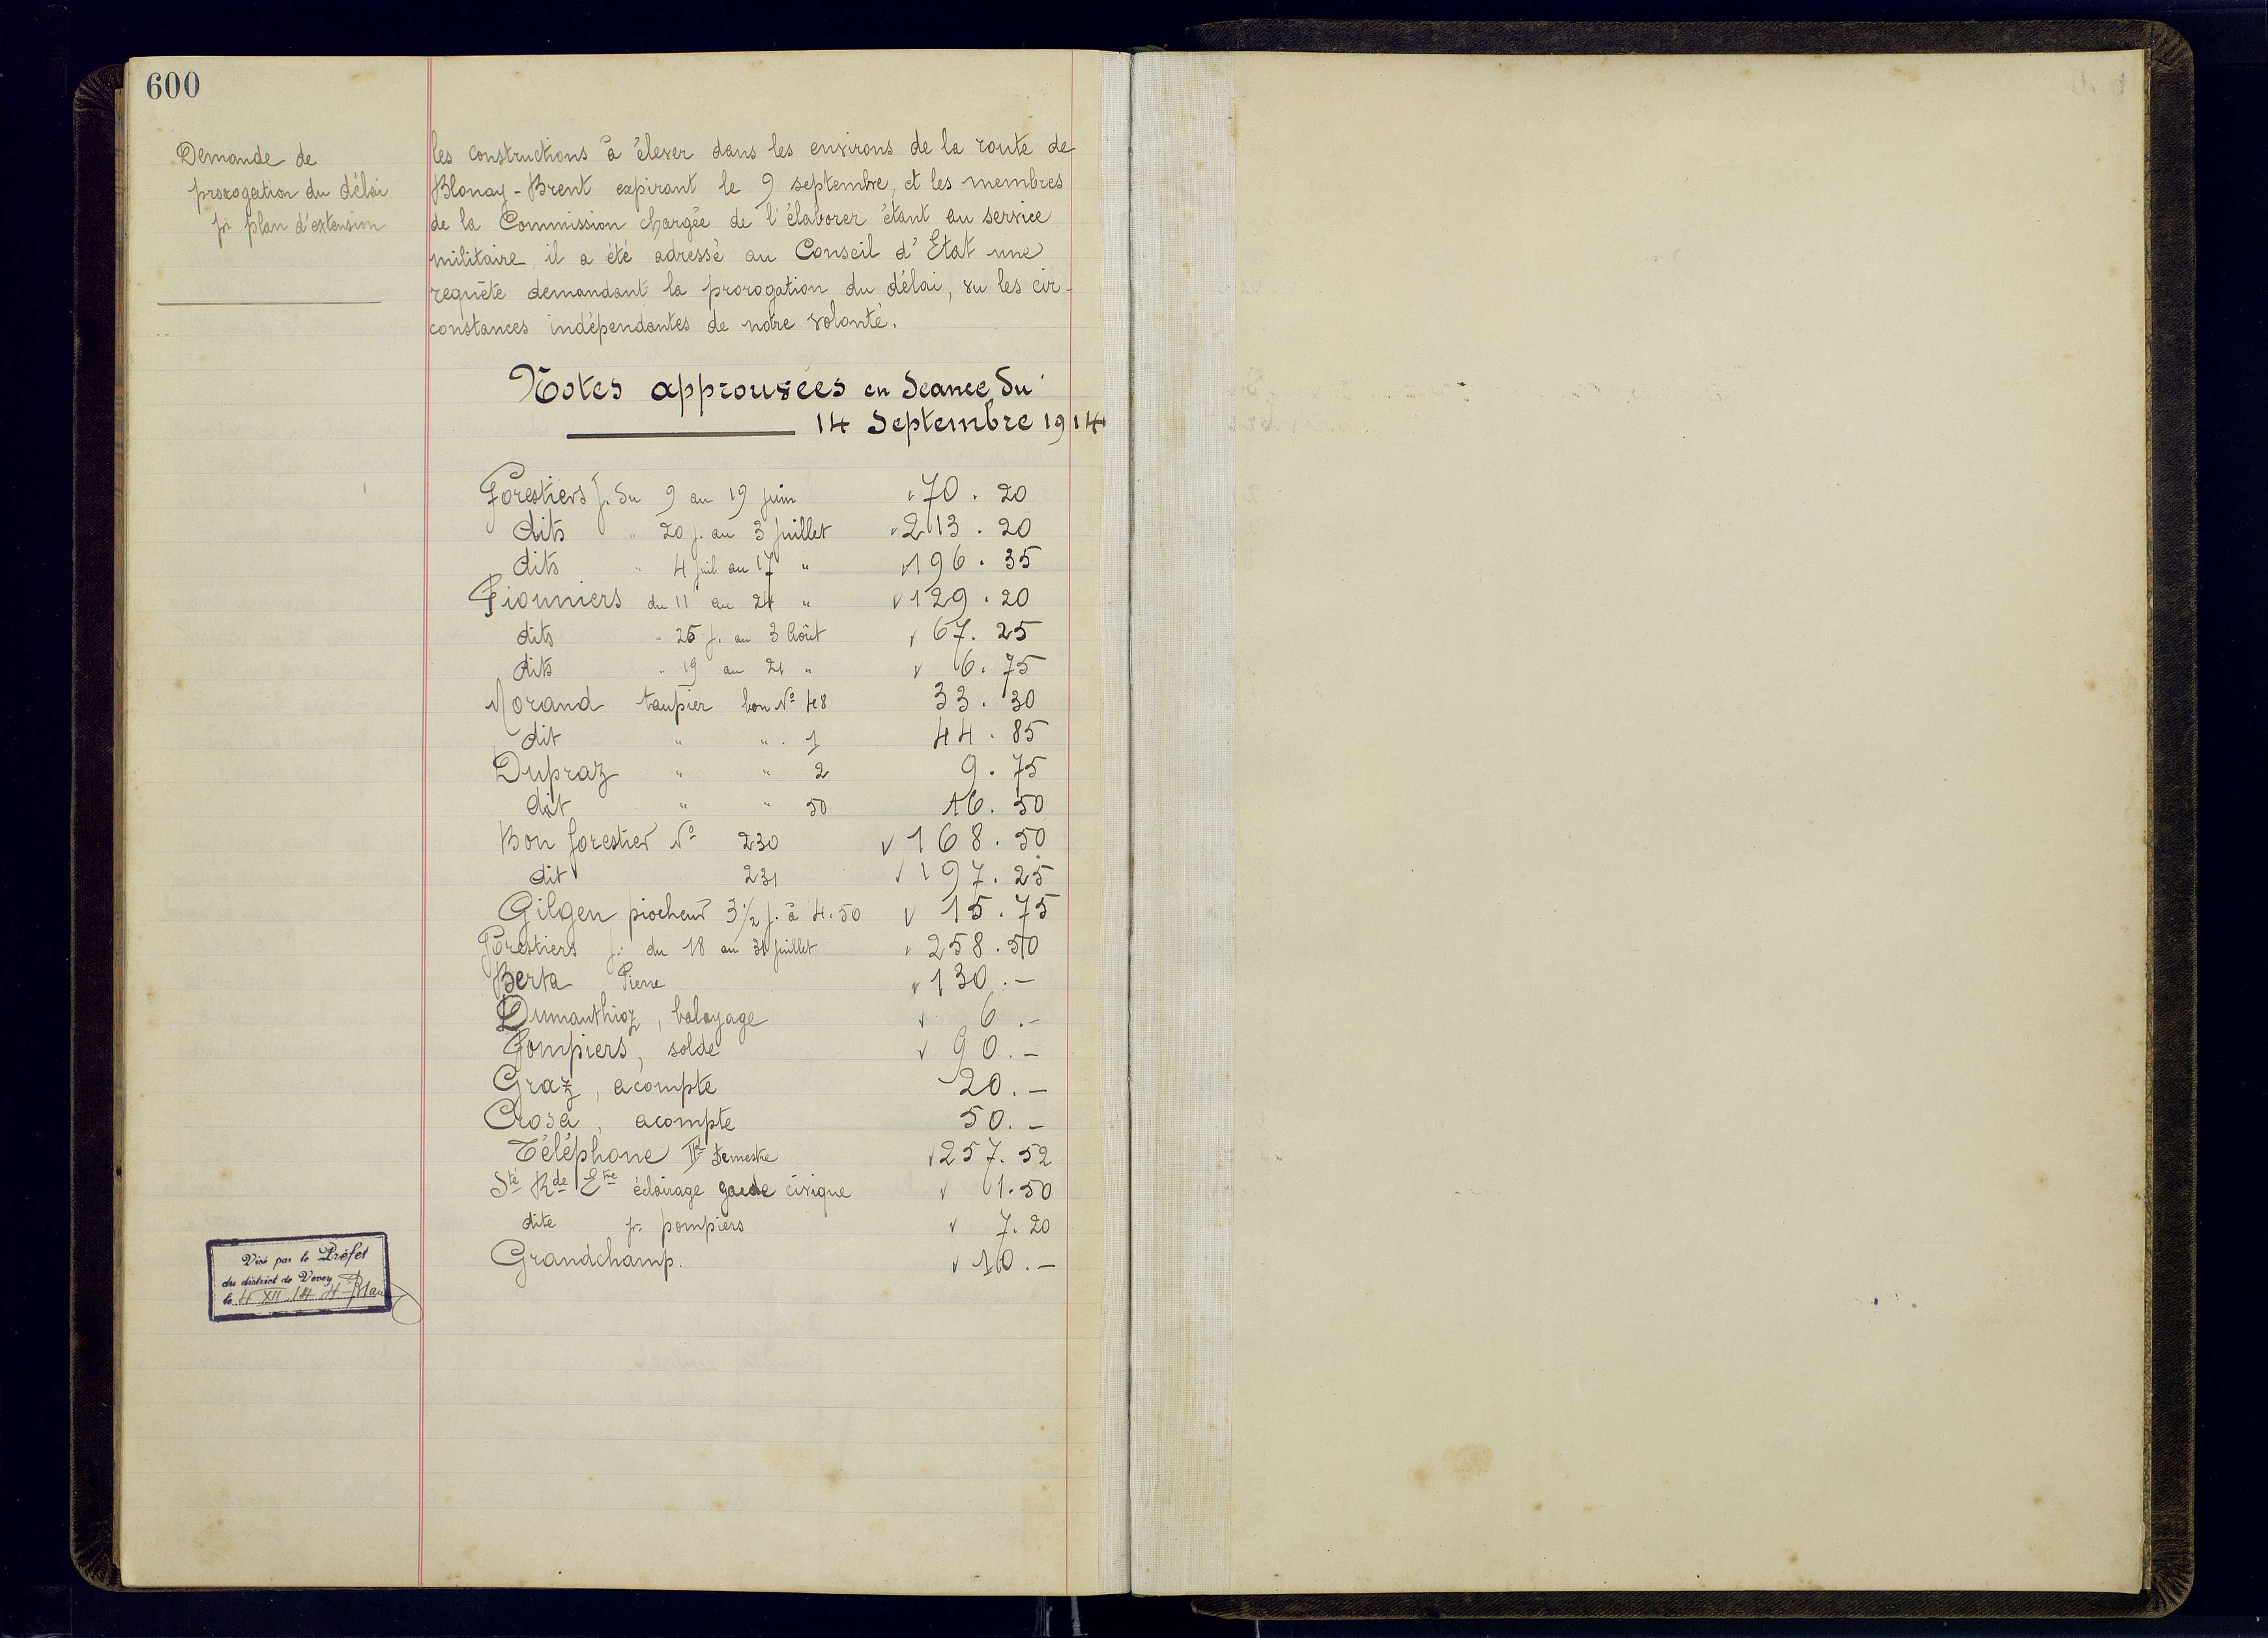 600
Demande de
prorogation du délai
pr plan d'extension
les constructions à élever dans les environs de la route de
Blonay-Brent expirant le 9 septembre, et les membres
de la Commission chargée de l'élaborer étant au service
militaire, il a été adressé au Conseil d'Etat une
requête demandant la prorogation du délai, vu les cir-
constances indépendantes de notre volonté.
Notes approuvées en Séance du
14 Septembre 1914
Forestiers j. du 9 au 19 juin √ 70.20
dits " 20 j. au 3 juillet √ 213.20
dits " 4 juil au 17 " √ 196.35
Pionniers du 11 au 24 " √ 129.20
dits " 25 j. au 3 Août √ 67.25
dits " 19 au 21 " √ 6.75
Morand taupier bon No 48 33.30
dit " " 1 44.85
Dupraz " " 2 9.75
dit " " 50 16.50
Bon forestier No 230 √ 168.50
dit 231 √ 197.25
Gilgen piocheur 3 1/2 j. à 4.50 √ 15.75
Forestiers j. du 18 au 31 juillet √ 258.50
Berta Pierre √ 130.-
Dumanthioz, balayage √ 6.-
Pompiers, solde √ 90.-
Graz, acompte 20.-
Crosa, acompte 50.-
Téléphone Semestre √ 257.52
Sté Rde Etre éclairage garde civique √ 1.50
dite pr pompiers √ 7.20
Grandchamp. √ 10.-
Visé par le Préfet
du district de Vevey
le 4 XII 14